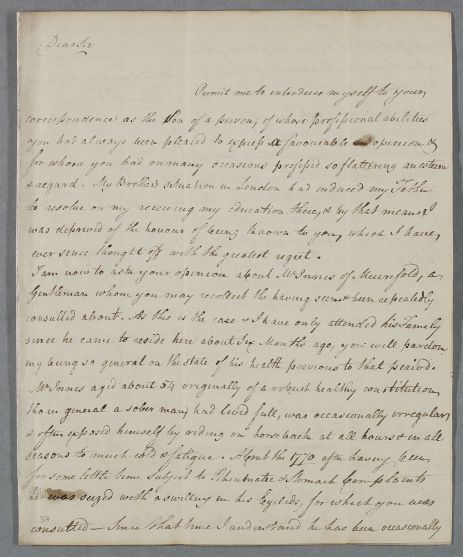 Dear Sir
Permit me to introduce myself to your
correspondence as the Son of a person, of whose professional abilities
you had always been pleased to express a favourable opinion &
for whom you had on many occasions professed so flattering an esteem
& regard. My Brothers situation in London had induced my Father
to resolve on my receiving my education there, & by that means I
was deprived of the honour of being known to you, which I have
ever since thought of with the greatest regret.
I am now to ask your opinion about Mr Innes of a
Gentleman whom you may recollect the having seen & been repeatedly
consulted about. As this is the case & I have only attended his Family
since he came to reside here about Six Months ago, you will pardon
my being so general on the state of his health previous to that period.
Mr Innes aged about 54 originally of a robust healthy constitution,
tho in general a sober man, had lived full, was occasionally irregular
& often exposed himself by riding on horseback at all hours & in all
seasons to much cold & fatigue. About the 1770 after having been
for some little time subject to Rheumatic & Stomach Complaints
he was seized with a swelling in his Eyelids, for which you was
consulted — Since that time I understand he has been occasionally